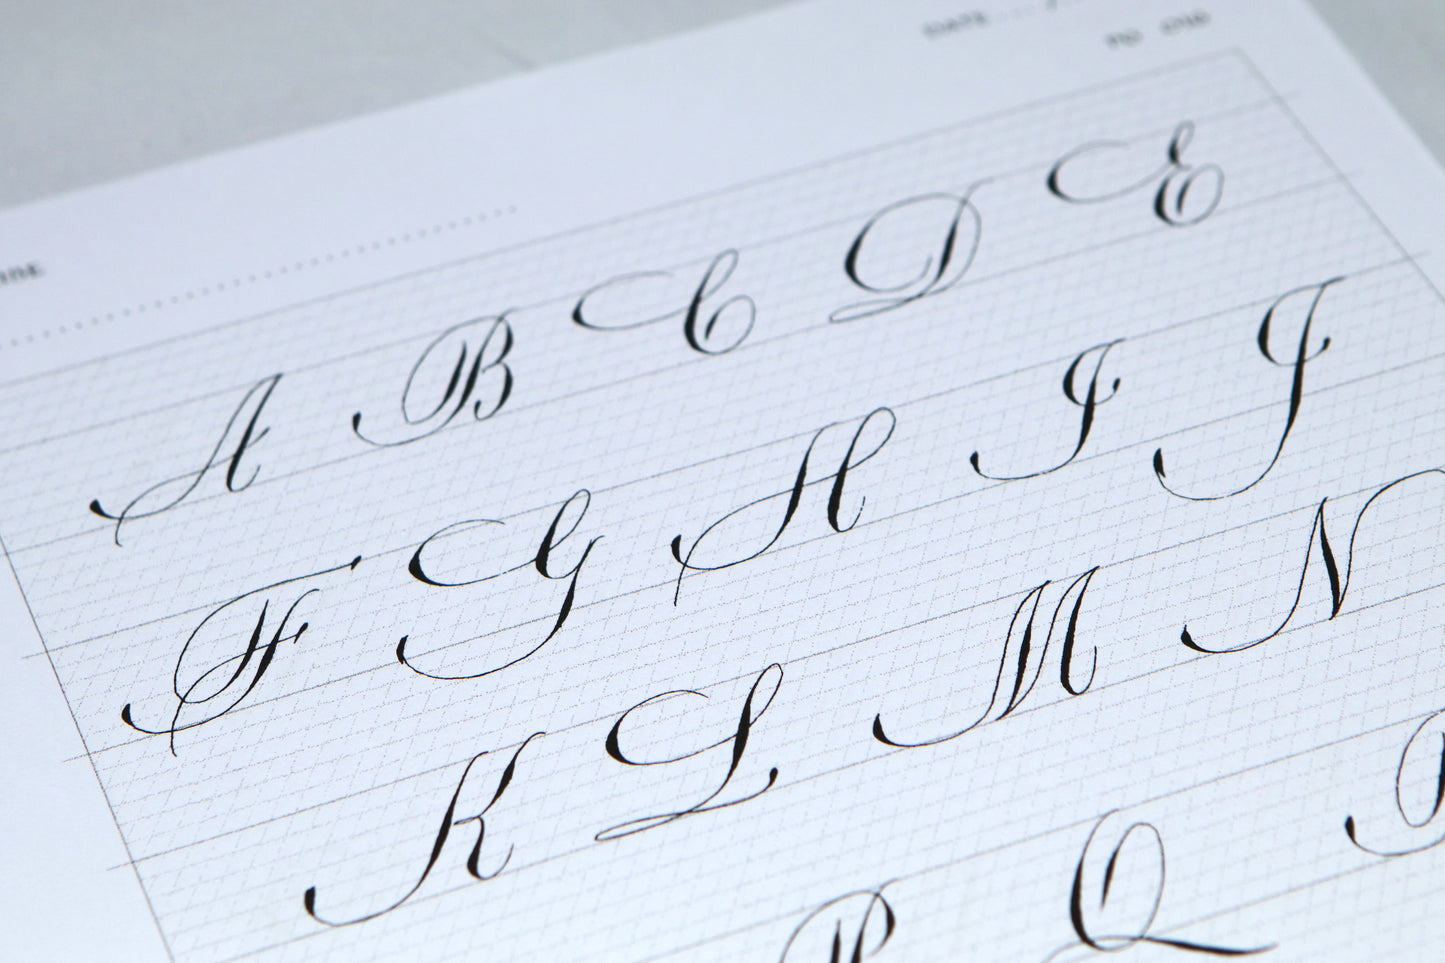 DATE
A B C D E
F G H I J
K L M N
P Q